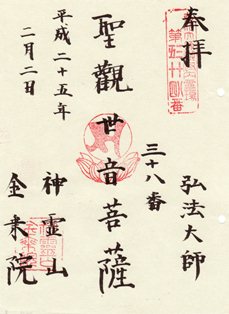 奉拝
弘法大師
三十八番
聖觀世音菩薩
神霊山
金乗院
平成二十五年
二月二日